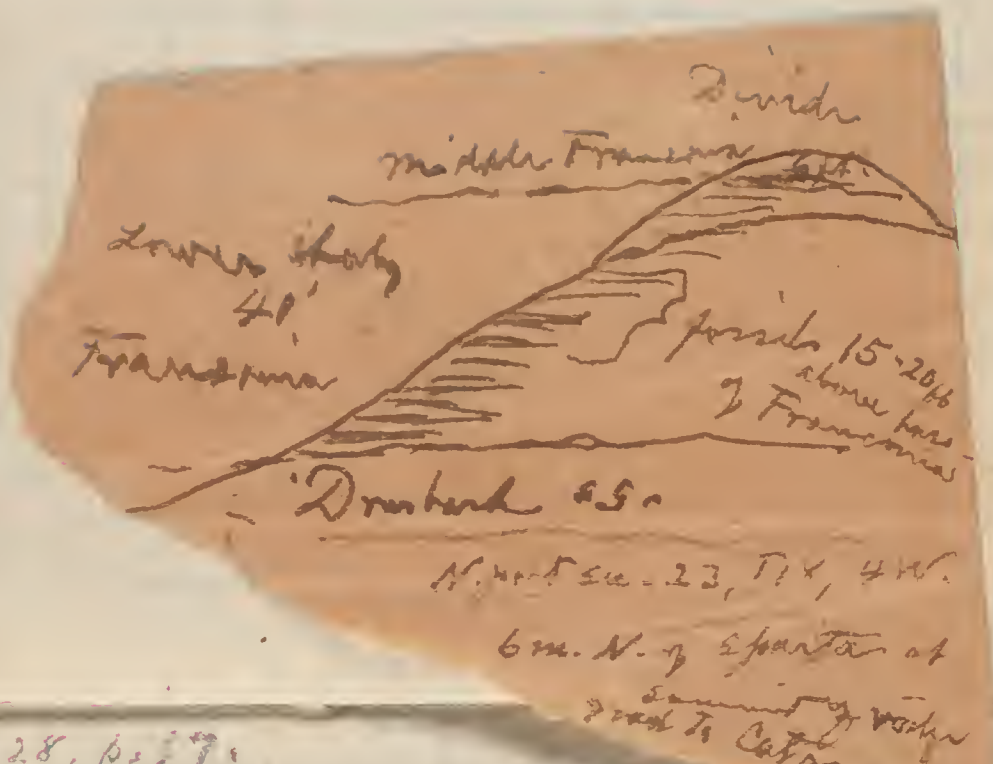 Divide
Middle Franconia
6 ft.
Lower shaly
40'
Franconia
fossils 15-20 ft
above base
of Franconia
Dresbach ss.
N. part sec. 23, 4W.
6 m. N. of Sparta at
summit of
road to
28, p.